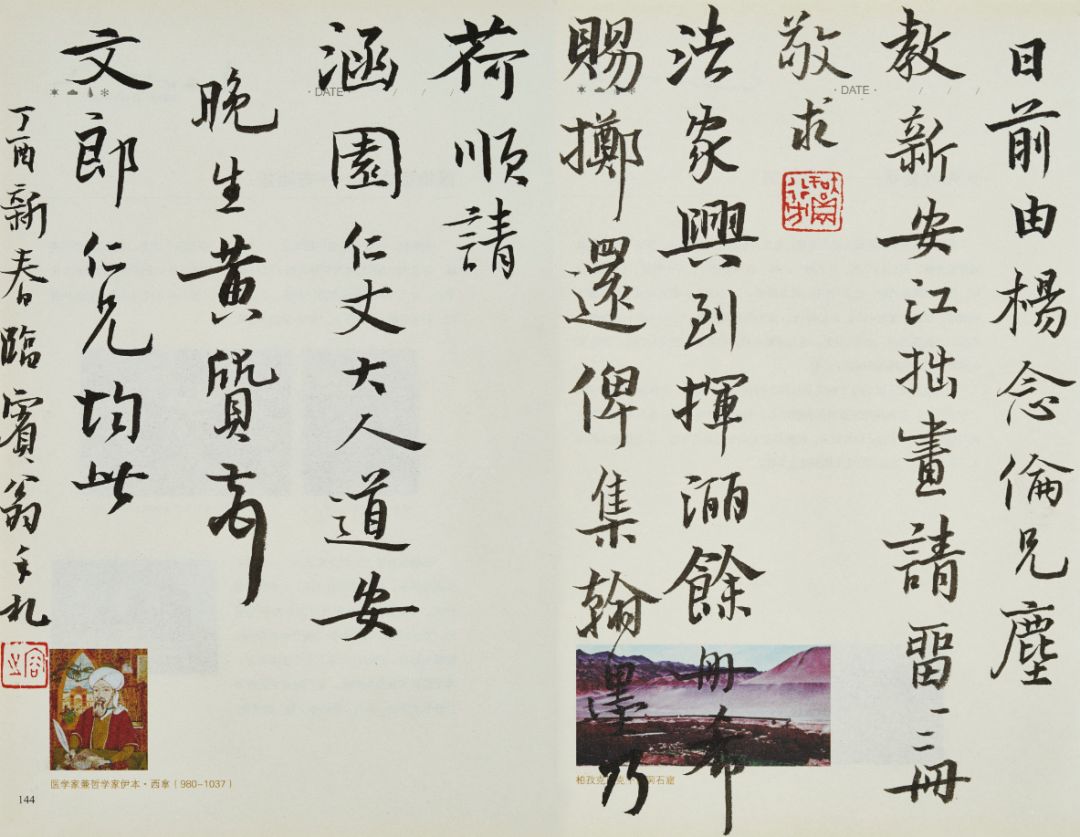 日前由楊念倫兄塵
教新安江拙畫請畱一二冊
敬求
法家興到揮洒餘冊希
賜擲還俾集翰墨
荷順請
涵園仁丈大人道安
晚生黃質
文郎仁兄均此
丁酉新春臨賓翁手札
·DATE·
·DATE·
医学家兼哲学家伊本·西拿（980-1037）
柏孜克 石窟
144